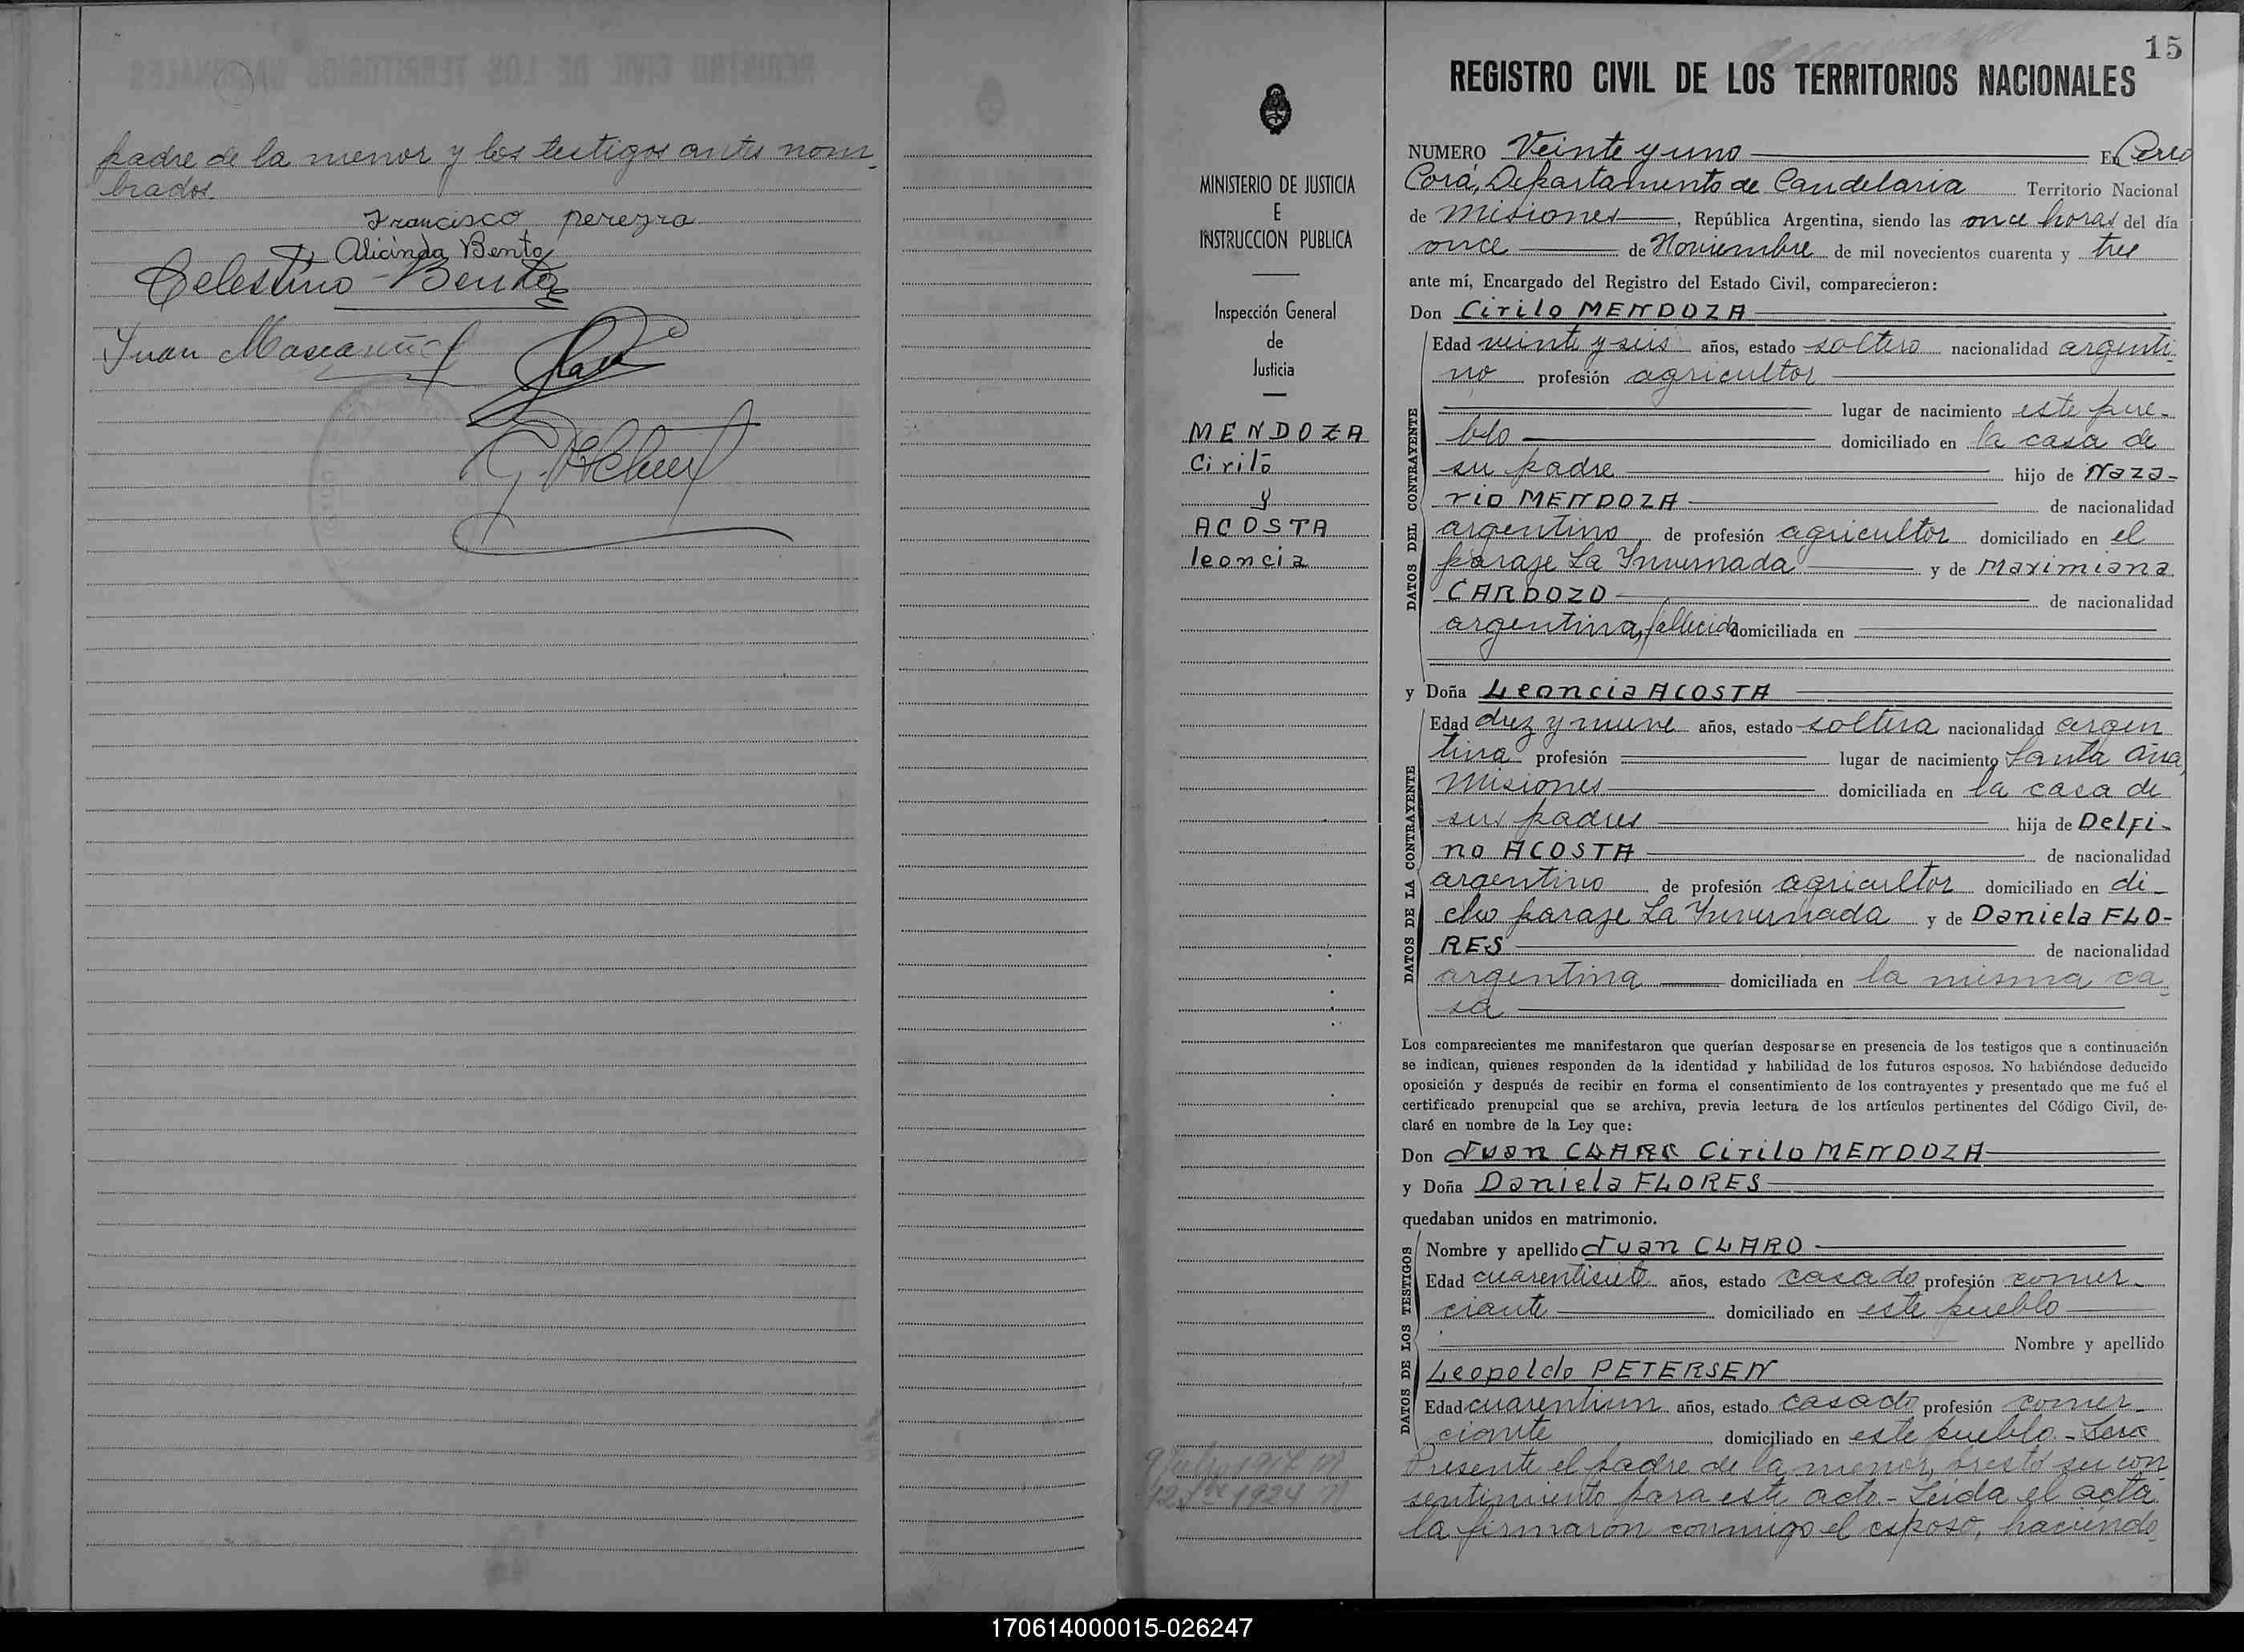 padre de la menor y los testigos antes nom-
brados.
Francisco pereyra
Alicinda Bento
Celestino Benitez
Juan
15
REGISTRO CIVIL DE LOS TERRITORIOS NACIONALES
MINISTERIO DE JUSTICIA
E
INSTRUCCION PUBLICA
Inspección General
de
Justicia
MENDOZA
Cirilo
y
ACOSTA
leoncia
NUMERO Veinte y uno En Cerro
Corá, Departamento de Candelaria Territorio Nacional
de Misiones, República Argentina, siendo las once horas del día
once de Noviembre de mil novecientos cuarenta y tres
ante mí, Encargado del Registro del Estado Civil, comparecieron:
Don Cirilo MENDOZA
Edad veinte y seis años, estado soltero nacionalidad argenti-
no profesión agricultor
lugar de nacimiento este pue-
blo domiciliado en la casa de
su padre hijo de Naza-
rio MENDOZA de nacionalidad
argentino, de profesión agricultor domiciliado en el
paraje La Invernada y de Maximiana
CARDOZO de nacionalidad
argentina, fallecida domiciliada en
DATOS DEL CONTRAYENTE
y Doña Leoncia ACOSTA
Edad diez y nueve años, estado soltera nacionalidad argen
tina profesión lugar de nacimiento Santa Ana,
Misiones domiciliada en la casa de
sus padres hija de Delfi-
no ACOSTA de nacionalidad
argentino de profesión agricultor domiciliado en di-
cho paraje La Invernada y de Daniela FLO-
RES de nacionalidad
argentina domiciliada en la misma ca-
sa
DATOS DE LA CONTRAYENTE
Los comparecientes me manifestaron que querían desposarse en presencia de los testigos que a continuación
se indican, quienes responden de la identidad y habilidad de los futuros esposos. No habiéndose deducido
oposición y después de recibir en forma el consentimiento de los contrayentes y presentado que me fué el
certificado prenupcial que se archiva, previa lectura de los artículos pertinentes del Código Civil, de-
claré en nombre de la Ley que:
Don Juan CLARK Cirilo MENDOZA
y Doña Daniela FLORES
quedaban unidos en matrimonio.
Nombre y apellido Juan CLARO
Edad cuarentisiete años, estado casado profesión comer-
ciante domiciliado en este pueblo
Nombre y apellido
Leopoldo PETERSEN
Edad cuarentiun años, estado casado profesión comer-
ciante domiciliado en este pueblo.-
DATOS DE LOS TESTIGOS
Presente el padre de la menor, prestó su con-
sentimiento para este acto.- Leída el acta
la firmaron conmigo el esposo, haciendo
170614000015-026247